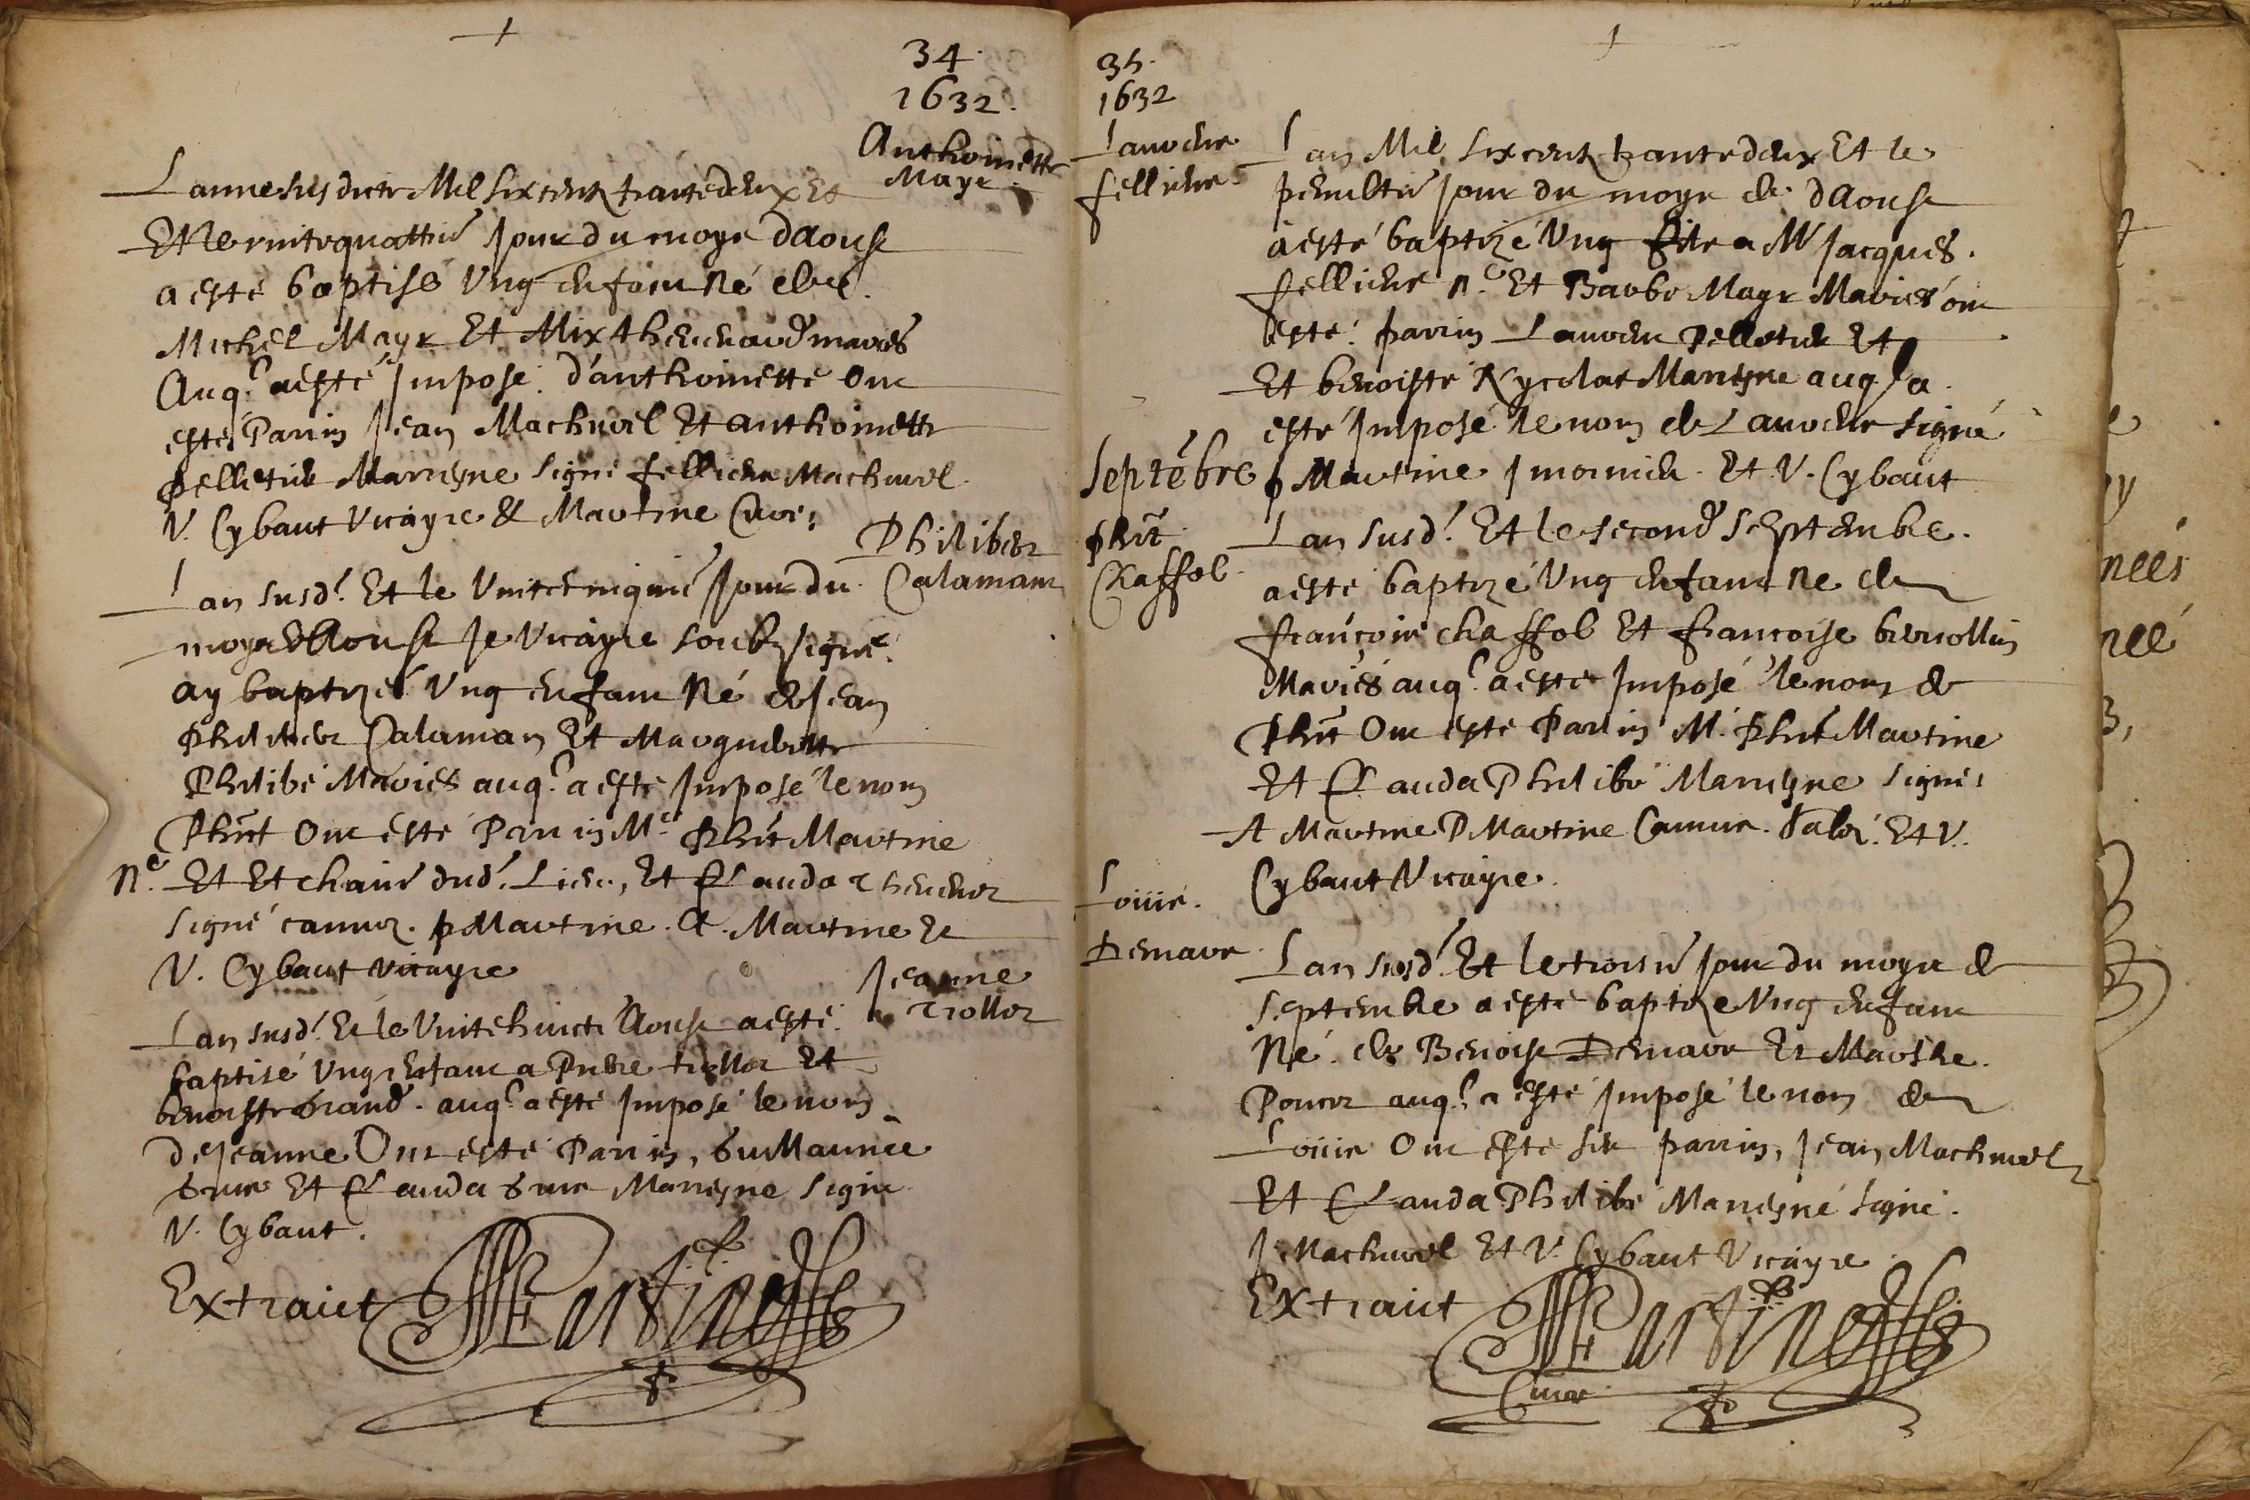 34
1632.
Anthoinette
Mayr
Lanne susdicte Mil six centz trante deux Et
Et le vinte quattrie Jour du moys daoust
a esté baptisé Ung enfant Né de
Michel Mayr Et thevenard mariés
Auq.l a esté Imposé d'anthoinette Ont
esté Parrin Jean Machurel Et anthoinette
Pelletier Marrisne signé felliche Machurel
V. Cybaut Vicayre & Martine Curé
Philiber
Calaman
Lan susd.t Et le Vinte cinquie Jour du
moys daoust Je Vicayre soubz signé
ay baptizé Ung enfant Né de Jean
Philiber Calaman Et Margueritte
Philibe Mariés auq.l a esté Imposé le nom
Phirt Ont esté Parrin M.e Phirt Martine
N.e Et Et chaire dud.t Lieu, Et Clauda thevenor
signé camus. p Martine. A. Martine Et
V. Cybaut vicayre
Jeanne
trollor
Lan susd.t Et le Vinte huict Aoust a esté
baptisé Ung enfant a Pierre trollor Et
benoiste brand. auq.l a esté Imposé le nom
de Jeanne Ont esté Parrin, Guillaume
Et Clauda Marrisne signé
V. Cybaut.
Extraict Martine
35.
1632
Lauvence
felliche
Lan Mil six centz trante deux Et le
penultie Jour du moys de daoust
a esté baptizé Ung fils a M Jacques
felliche n.e Et Barbe Mayr Mariés ont
esté parrin Pelletier Et
Et benoiste Nycolas Marrisne auq.l a
esté Imposé le nom de signé
Septẽbre
p Martine J mornier Et V. Cybaut
Phirt
Chaffol
Lan susd.t Et le second septembre
a esté baptizé Ung enfant Né de
françois chaffol Et francoise
Mariés auq.l a esté Imposé le nom de
Phirt Ont esté Parrin M. Phirt Martine
Et Clauda Philibe Marrisne signés
A Martine P Martine Camus. Et V.
Cybaut Vicayre.
Loïse
Demare
Lan susd.t Et le troisie Jour du moys de
septembre a esté baptize Ung enfant
Né de Benoist Demare Et Marthe
Poncer auq.l a esté Imposé le nom de
Loïse Ont esté ses parrin, Jean Machurel
Et Clauda Philibe Marrisne signé
J. Machurel Et V. Cybaut Vicayre
Extraict Martine
Curé